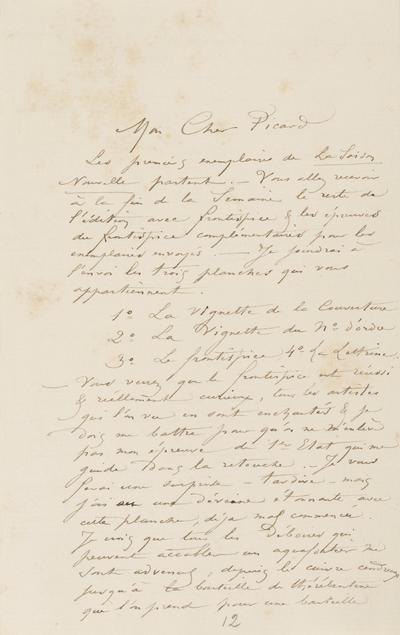 Mon Cher Picard
Les premiers exemplaires de La Saison
Nouvelle partent. — Vous allez recevoir
à la fin de la Semaine le reste de
l'édition avec frontispice & les épreuves
du frontispice complémentaires pour les
exemplaires envoyés. — Je joindrai à
l'envoi les trois planches qui vous
appartiennent.
1º La Vignette de la Couverture
2º La Vignette du Nº d'ordre
3º Le frontispice 4º La Lettrine.
Vous verrez que le frontispice est réussi
& réellement curieux, tous les artistes
qui l'on vu en sont enchantés & je
dois me battre pour qu'on ne m'enlève
pas mon épreuve de 1er Etat qui me
guide dans la retouche. — Je vous
ferai une surprise — tardive — mais
j'ai eu une déveine étonnante avec
cette planche, déjà mal commencée.
Je crois que tous les Déboires qui
peuvent accabler un aquafortiste me
sont advenus, depuis le cuivre cendreux
jusqu'à la bouteille de thérébentine
que l'on prend pour une bouteille
12